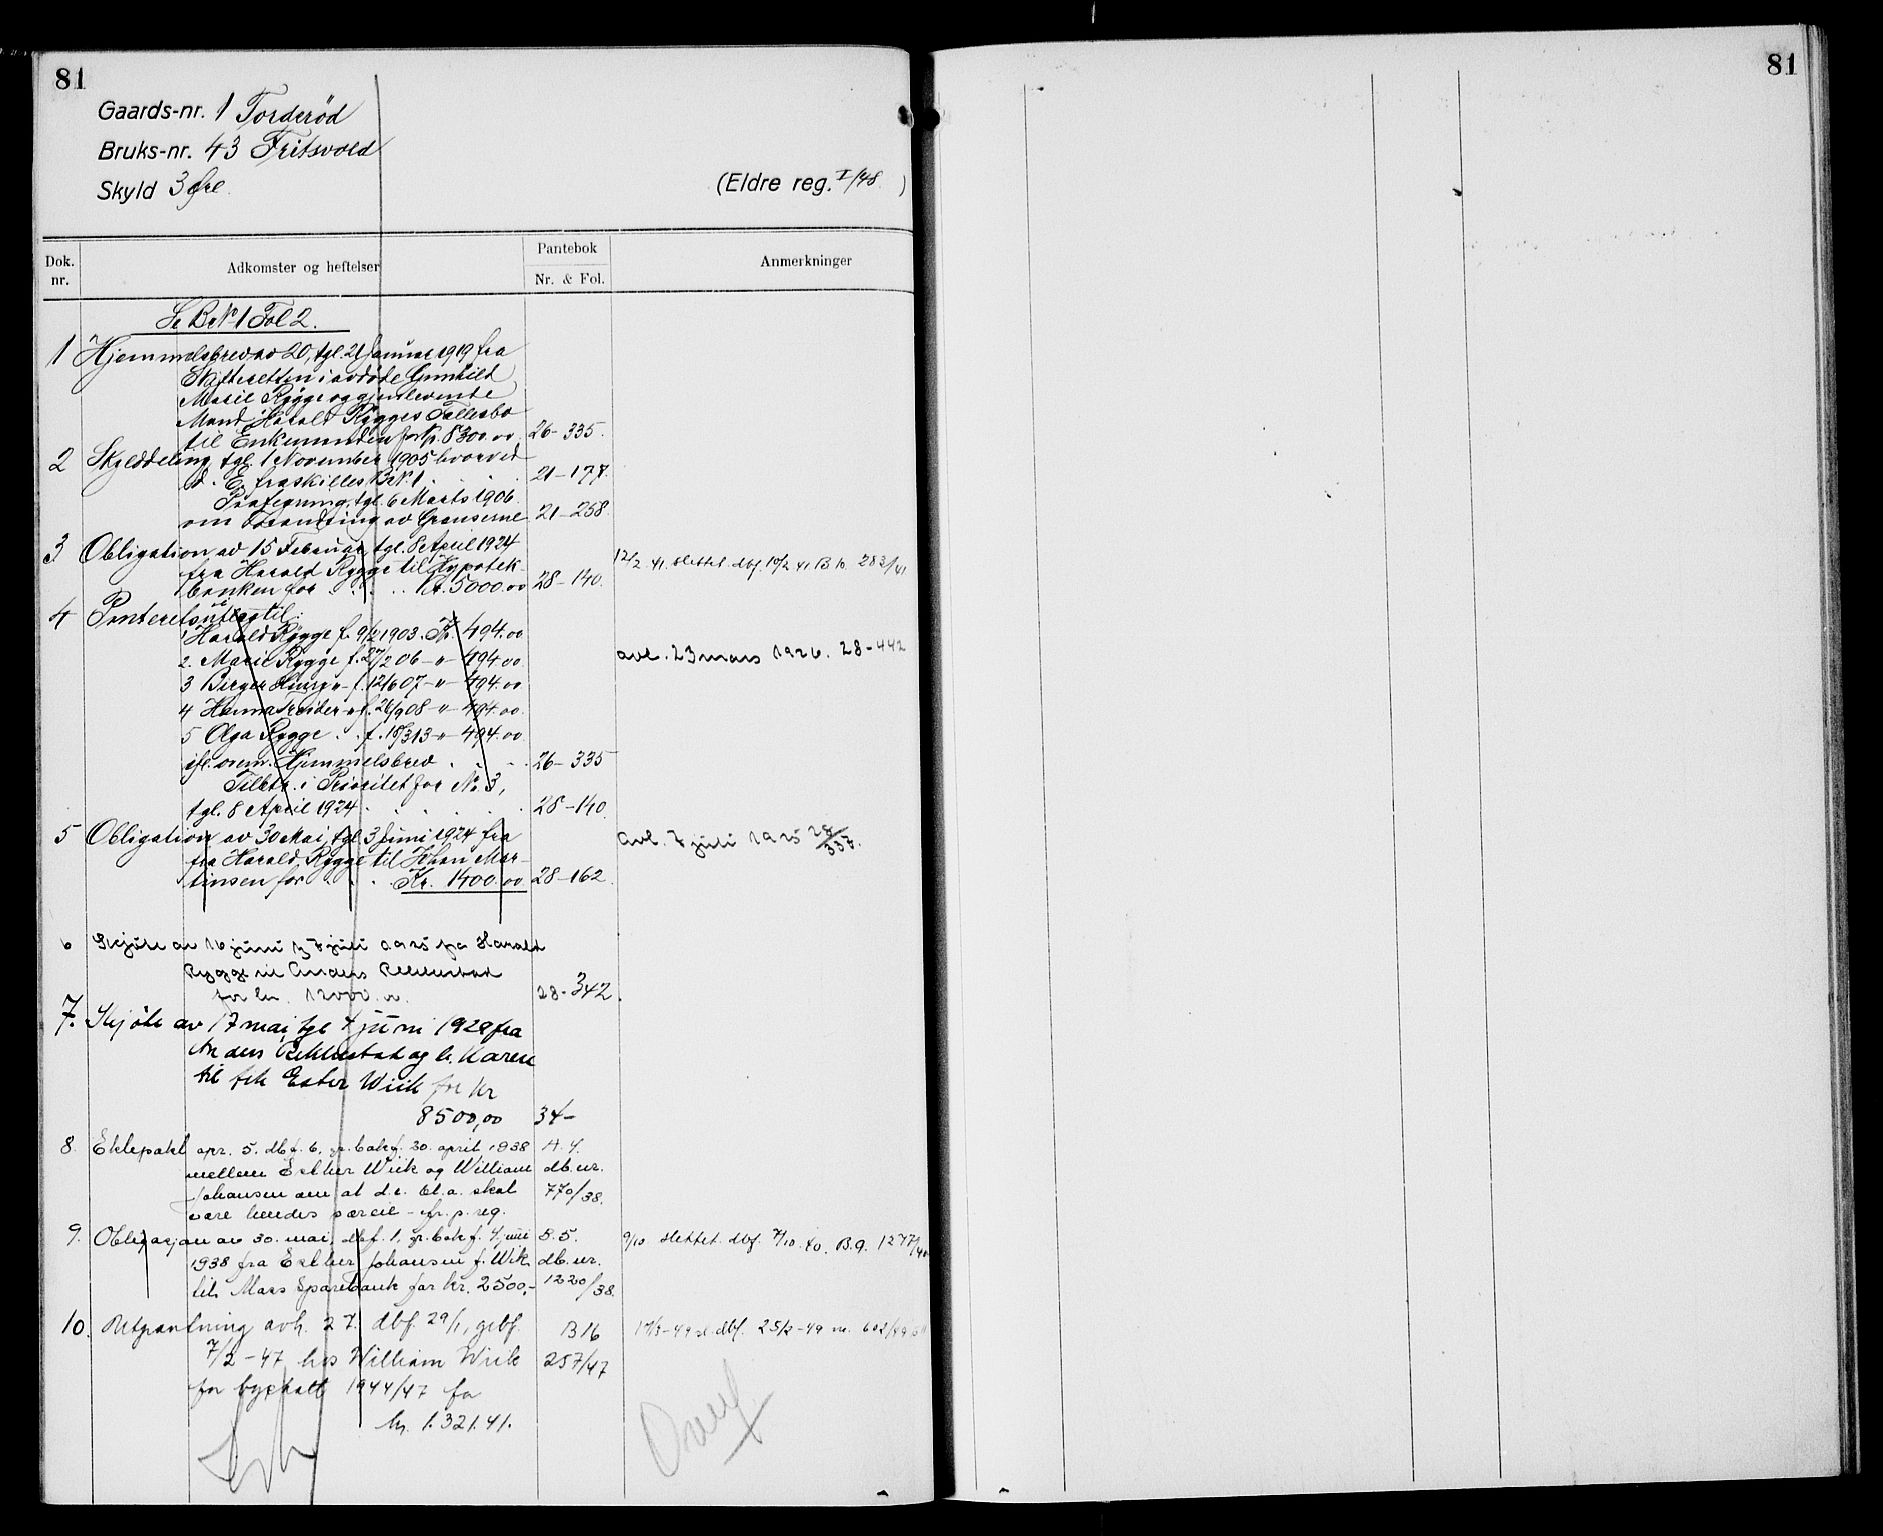 81
Gaards-nr. 1 Torderød
Bruks-nr. 43 Fritsvold
Skyld 3 øre
(Eldre reg. I/48 )
Dok. nr.
Adkomster og heftelser
Pantebok
Nr. & Fol.
Anmerkninger
Se BrN 1 Fol 2.
1 Hjemmelsbrev av 20, tgl. 21 Januar 1919 fra
Skifteretten i avdøde Gunhild
Marie Rygge og gjenlevende
Mand Harald Rygges Fællesbo
til Enkemanden for Kr. 8300.00. 26-335.
2 Skylddeling, tgl. 1 November 1905 hvorved
d. E. fraskilles BN. 1 21-177.
tgl. 6 Marts 1906
om Forandring av Grænserne 21-258.
3 Obligation av 15 Februar, tgl. 8 April 1924
fra Harald Rygge til Hypotek-
banken for Kr. 5000.00 28-140.
12/2 41. slettet. dbf. 10/2 41 B 10. 283/41
4 Panteretsutlæg til:
1 Harald Rygge f. 9/2 1903. Kr. 494.00
2. Marie Rygge f. 27/2 06 -"- 494.00
avl. 23 mars 1926. 28-442
3 Birger -"- f. 12/6 07 -"- 494.00
4 Hanna -"- f. 26/9 08 -"- 494.00.
5 Olga Rygge f. 18/3 13 -"- 494.00
ifl. ovenn. Hjemmelsbrev 26-335
Tilktr. i Prioritet for No 3,
tgl. 8 April 1924 28-140.
5 Obligation av 30 Mai, tgl. 3 Juni 1924 fra
fra Harald Rygge til Johan Mar-
tinsen for Kr. 1400.00 28-162.
Avl. 7 juli 1925 28/337.
6 Skjøte av 16 juni tgl 7 juli 1925 fra Harald
Rygge til Anders
for kr. 12000.00. 28-342.
7. Skjøte av 17 mai, tgl 4 juni 1928 fra
Anders og h. Karen
til frk Ester Wiik for kr
8500,00 34-
8. Ektepakt opr. 5. dbf. 6. gr. bokf. 30. april 1938 A. 4.
mellem Esther Wiik og William db.nr.
Johansen om at d.e. bl.a. skal 770/38.
være hendes særeie - jfr. p. reg.
9. Obligasjon av 30. mai, dbf. 1. gr. bokf. 4. juni B. 5.
1938 fra Esther Johansen f. Wiik db.nr.
til Moss Sparebank for kr. 2500,- 1220/38.
9/10 slettet. dbf. 7/10. 40. B. 9. 1277/40
10. Utpantning avh. 27. dbf. 29/1, grbf. B 16
7/2 - 47 hos William Wiik 257/47
for byskatt 1944/47 for
kr. 1.321.41.
17/3-49 sl. dbf. 25/2-49 nr. 602/49
81